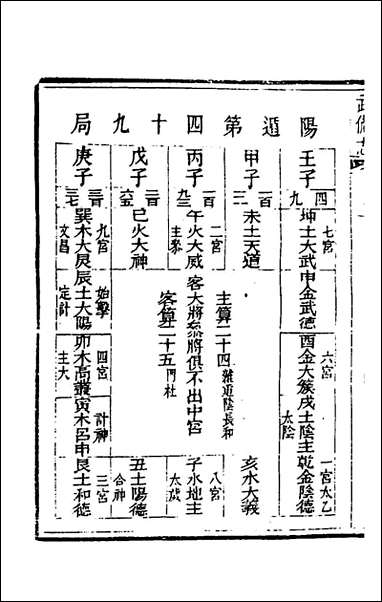 武備志
陽遁第四十九局
壬子 四九
七宮
坤土大武申金武德
六宮
酉金大簇戌土陰主
太陰
一宮太乙
乾金陰德
甲子 一百二一
未土天道
主算二十四雜道陰長和
亥水大義
丙子 一百九三
二宮
午火大威
主參
客大將參將俱不出中宮
客算二十五門杜
八宮
子水地主
太歲
戊子 二百六五
巳火大神
丑土陽德
合神
庚子 三百三七
九宮
巽木大炅
文昌
始擊
辰土大陽
定計
四宮
卯木高叢
主大
計神
寅木呂申
三宮
艮土和德